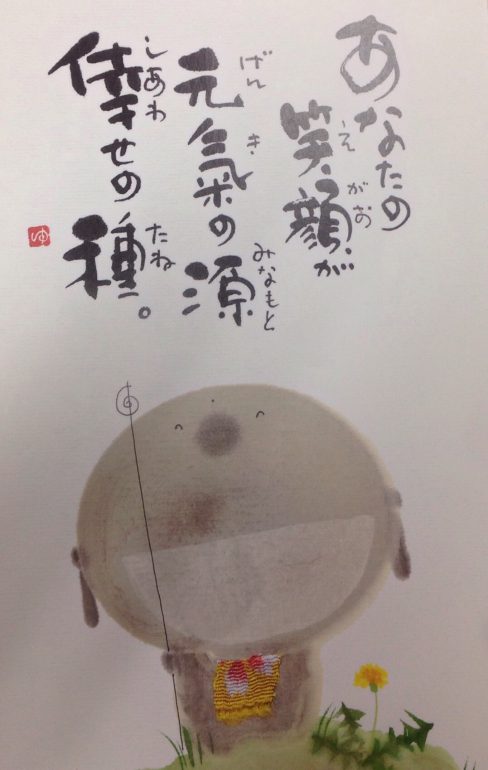 あなたの
笑顔が
えがお
元氣の源
げんき みなもと
倖せの種。
しあわ たね
ゆ